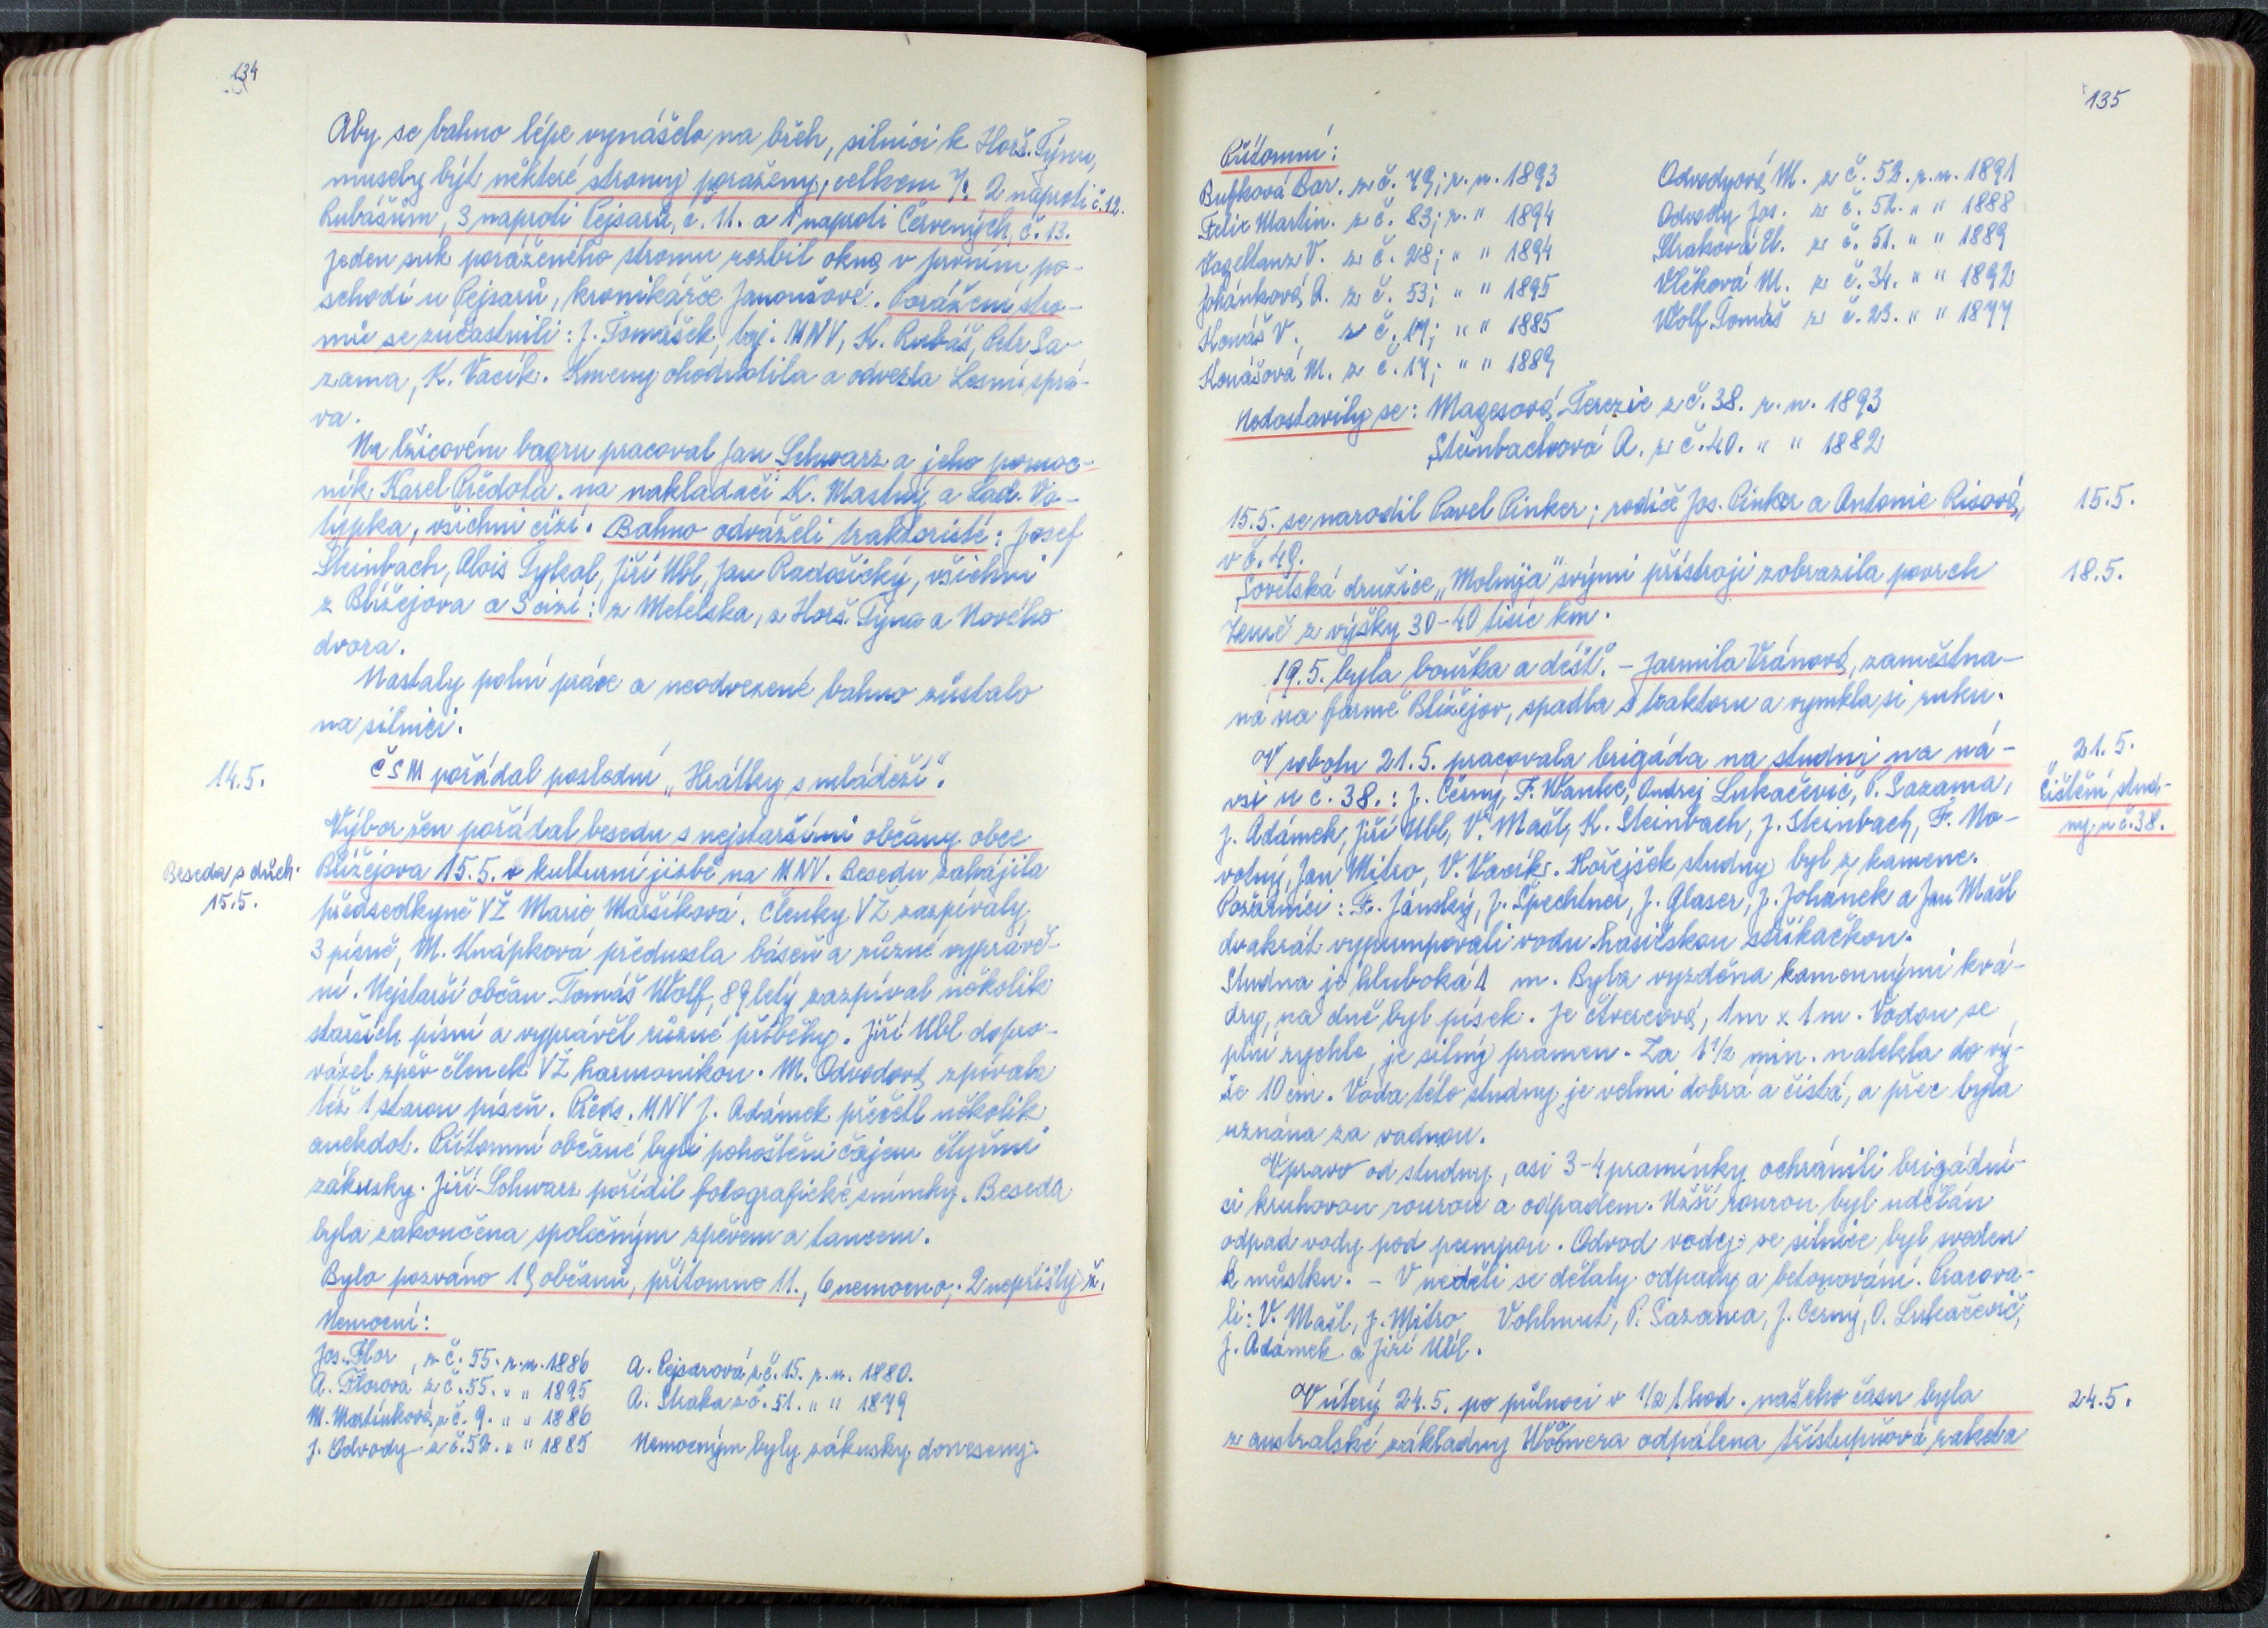 134
Aby se bahno lépe vynášelo na břeh, silnici k Horš. Týnu,
musely být některé stromy poraženy, celkem 7: 2 naproti č. 12.
Rubášům, 3 naproti Pejsarů, č. 11. a 1 naproti Červených, č. 13.
Jeden suk poraženého stromu rozbil okno v prvním po-
schodí u Pejsarů, kronikářce Janoušové. Porážení stro-
mů se zúčastnili: J. Tomášek, taj. MNV, K. Rubáš, Petr Sa-
zama, K. Vacík. Kmeny ohodnotila a odvezla Lesní sprá-
va.
Na lžicovém bagru pracoval Jan Schwarz a jeho pomoc-
ník Karel Předota. na nakladači K. Mastný a Lad. Vo-
lýpka, všichni cizí. Bahno odváželi traktoristé: Josef
Steinbach, Alois Tykal, Jiří Ubl, Jan Radošický, všichni
z Blížejova a 3 cizí: z Metelska, z Horš. Týna a Nového
dvora.
Nastaly polní práce a neodvezené bahno zůstalo
na silnici.
14.5.
ČSM pořádal poslední „Hrátky s mládeží".
Výbor žen pořádal besedu s nejstaršími občany obce
Beseda s důch.
15.5.
Blížejova 15.5. v kulturní jizbě na MNV. Besedu zahájila
předsedkyně VŽ Marie Maršíková. Členky VŽ zazpívaly
3 písně, M. Knápková přednesla báseň a různé vyprávě-
ní. Nejstarší občan Tomáš Wolf, 89 letý zazpíval několik
starších písní a vyprávěl různé příběhy. Jiří Ubl dopro-
vázel zpěv členek VŽ harmonikou. M. Odvodová zpívala
též 1 starou píseň. Předs. MNV J. Adámek přečetl několik
anekdot. Přítomní občané byli pohoštěni čajem čtyřmi
zákusky. Jiří Schwarz pořídil fotografické snímky. Beseda
byla zakončena společným zpěvem a tancem.
Bylo pozváno 19 občanů, přítomno 11., 6 nemocno, 2 nepřišly ž.
Nemocní:
Jos. Flor, z č. 55. r. n. 1886
A. Florová z č. 55. " " 1895
M. Martínková z č. 9. " " 1886
J. Odvody z č. 52. " " 1885
A. Pejsarová z č. 15. r. n. 1880.
A. Straka z č. 51. " " 1879
Nemocným byly zákusky doneseny.
135
Přítomní:
Bufková Bar. z č. 79; r. n. 1893
Felix Martin. z č. 83; r. " 1894
Vogeltanz V. z č. 28; " " 1894
Johánková A. z č. 53; " " 1895
Konáš V., z č. 17; " " 1885
Konášová M. z č. 17; " " 1889
Odvodyová M. z č. 52. r. n. 1891
Odvody Jos. z č. 52. " " 1888
Straková El. z č. 51. " " 1889
Vlčková M. z č. 34. " " 1892
Wolf Tomáš z č. 23. " " 1877
Nedostavily se: Magesová Terezie z č. 38. r. n. 1893
Steinbachová A. z č. 40. " " 1882
15.5. se narodil Pavel Pinker; rodiče Jos. Pinker a Antonie Risová,
15.5.
v č. 49.
Sovětská družice „Molnija" svými přístroji zobrazila povrch
18.5.
Země z výšky 30-40 tisíc km.
19.5. byla bouřka a déšť. - Jarmila Vránová, zaměstna-
ná na farmě Blížejov, spadla s traktoru a vymkla si ruku.
V sobotu 21.5. pracovala brigáda na studni na ná-
21.5.
Čištění stud-
ny u č. 38.
vsi u č. 38.: J. Černý, F. Wanke, Andrej Lukačevič, P. Sazama,
J. Adámek, Jiří Ubl, V. Mašl, K. Steinbach, J. Steinbach, F. No-
votný, Jan Mitro, V. Vacík. Hořejšek studny byl z kamene.
Požárníci: F. Jánský, J. Špechtner, J. Glaser, J. Johánek a Jan Mašl
dvakrát vypumpovali vodu hasičskou stříkačkou.
Studna je hluboká 4 m. Byla vyzděna kamennými kvá-
dry, na dně byl písek. Je čtvercová, 1m x 1m. Vodou se
plní rychle, je silný pramen. Za 1 1/2 min. natekla do vý-
še 10 cm. Voda této studny je velmi dobrá a čistá, a přec byla
uznána za vadnou.
Vpravo od studny, asi 3-4 pramínky ochránili brigádní-
ci kruhovou rourou a odpadem. Užší rourou byl udělán
odpad vody pod pumpou. Odvod vody se silnice byl sveden
k můstku. - V neděli se dělaly odpady a betonování. Pracova-
li: V. Mašl, J. Mitro, Vohlmut, P. Sazama, J. Černý, O. Lukačevič,
J. Adámek a Jiří Ubl.
V úterý 24.5. po půlnoci v 1/2 1 hod. našeho času byla
24.5.
z australské základny Woomera odpálena třístupňová raketa